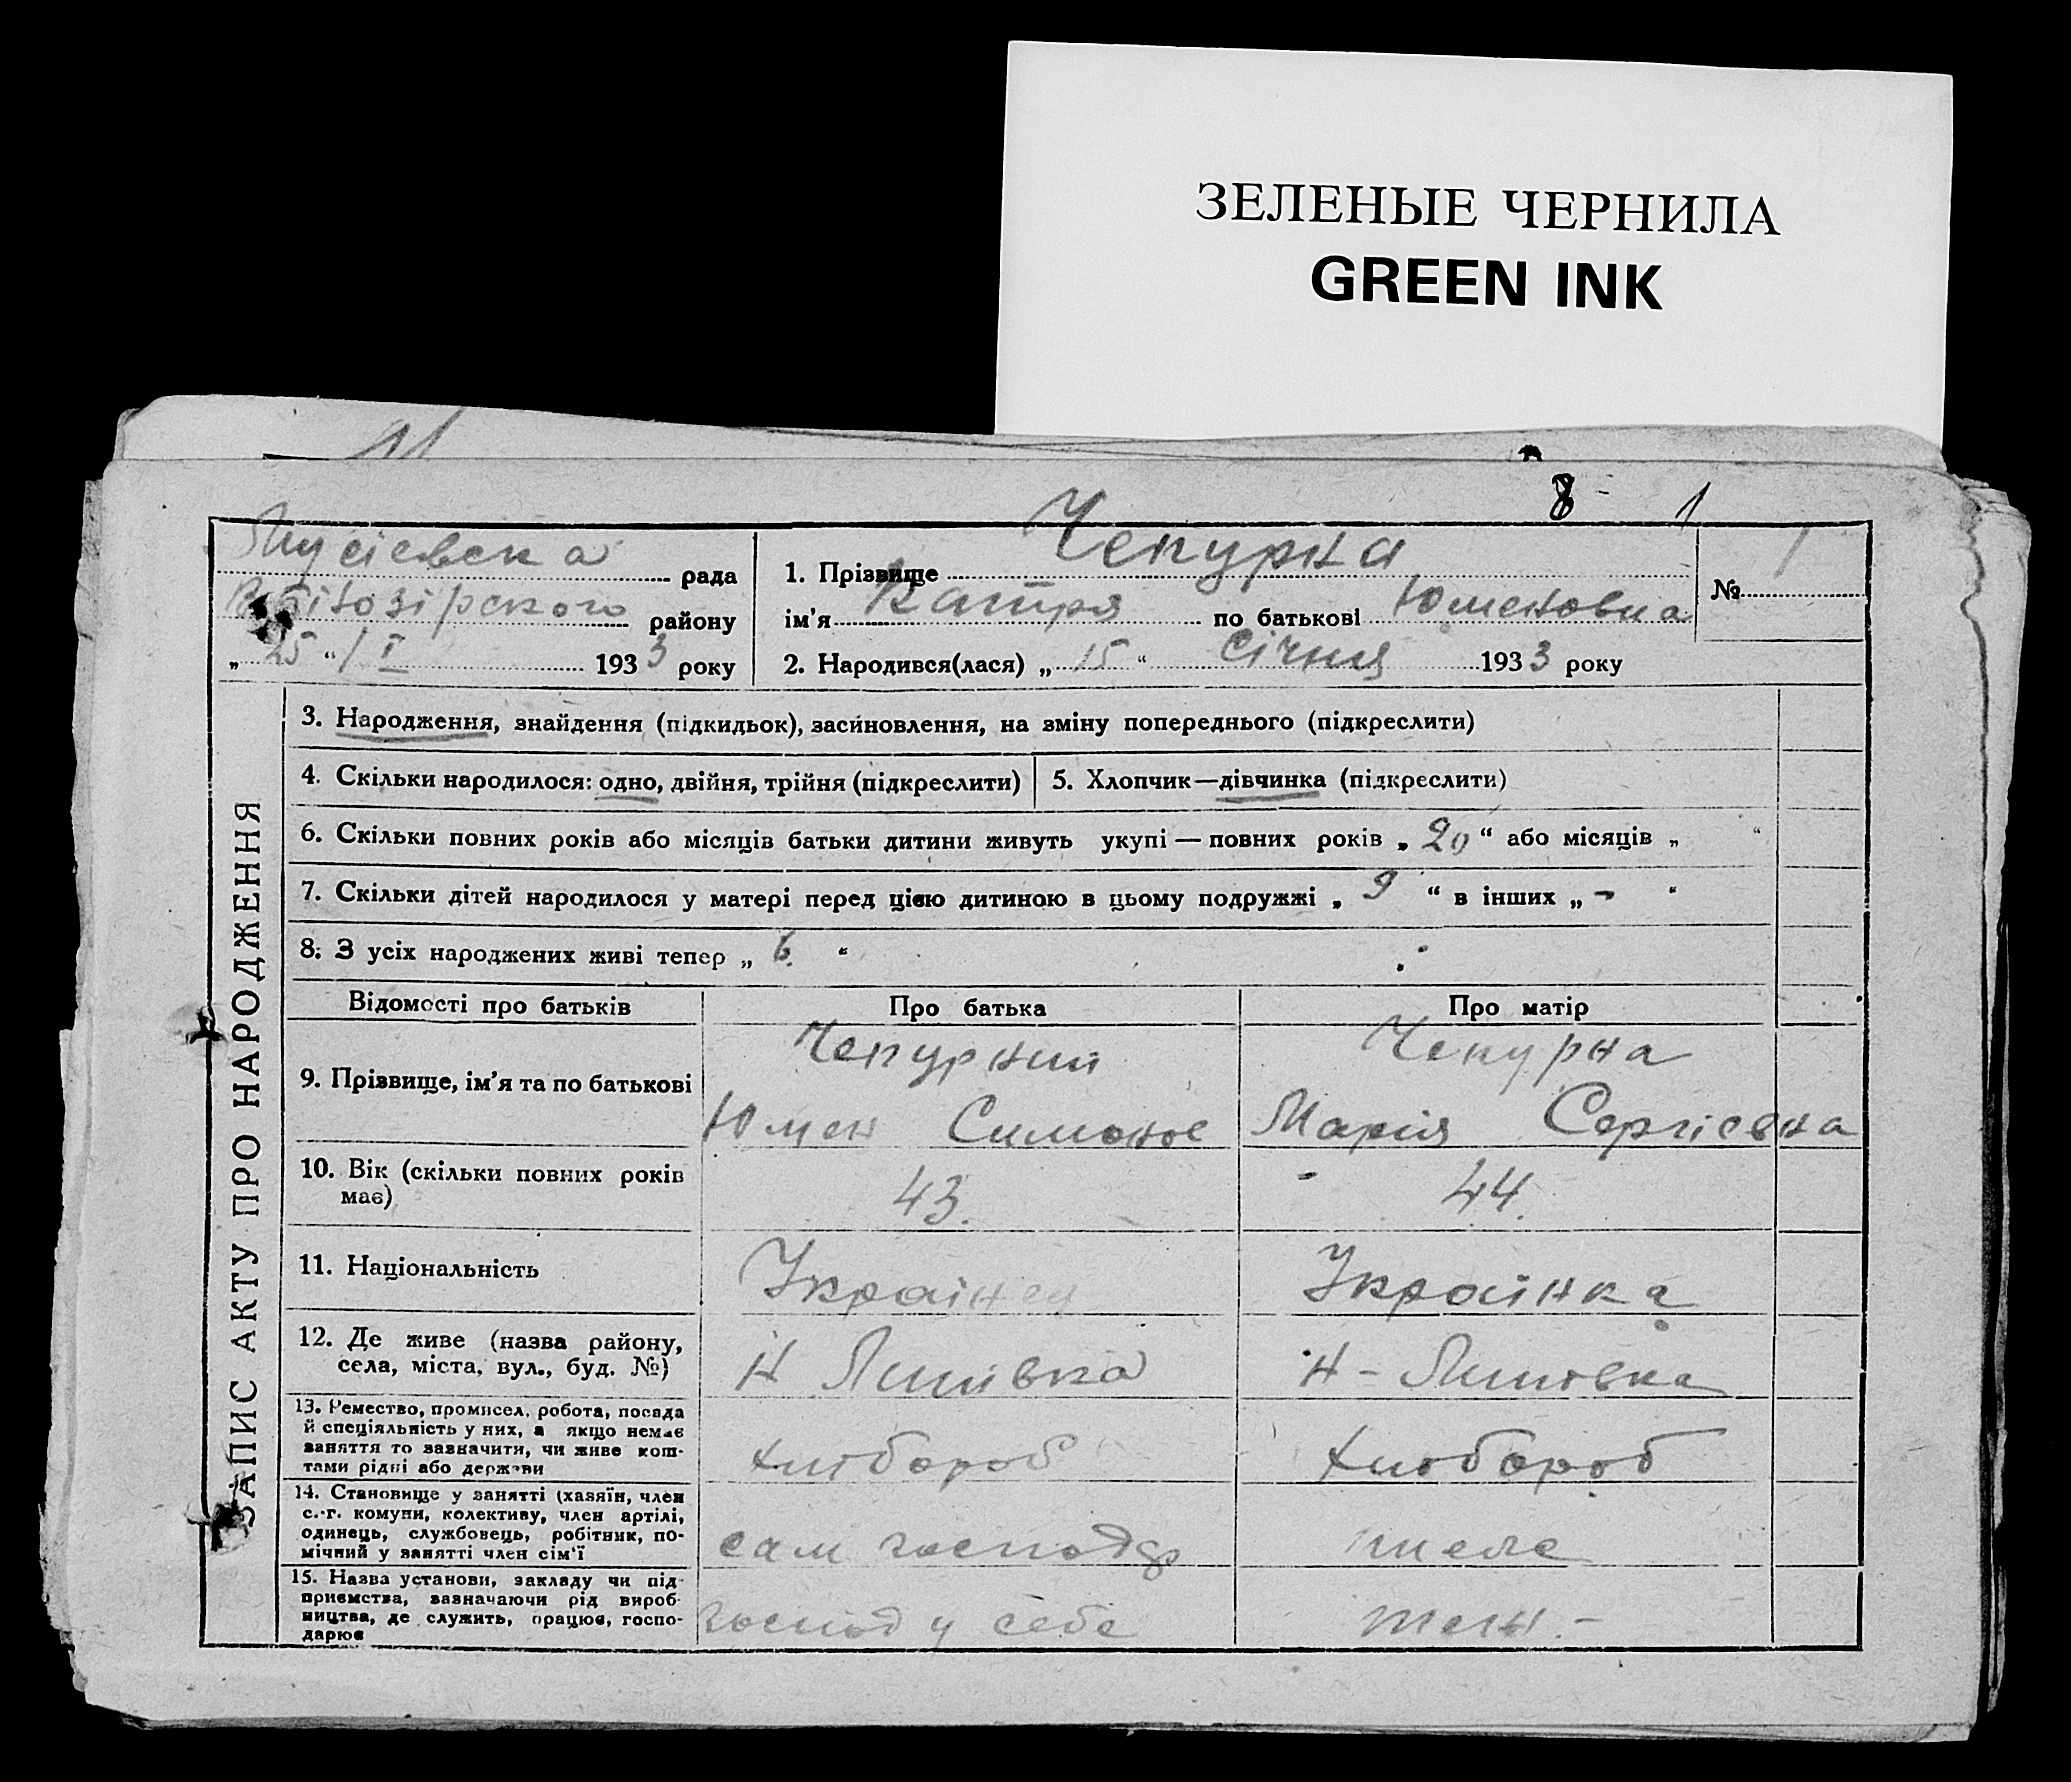 ЗЕЛЕНЫЕ ЧЕРНИЛА
GREEN INK
11
8 - 1
Мусієвска рада
району
„ 25 “ / I 1933 року
1. Прізвище Чепурна
ім'я Катря по батькові Юменовна
2. Народився(лася) „ 15 “ Січня 1933 року
№ 1
ЗАПИС АКТУ ПРО НАРОДЖЕННЯ
3. Народження, знайдення (підкидьок), засиновлення, на зміну попереднього (підкреслити)
4. Скільки народилося: одно, двійня, трійня (підкреслити)
5. Хлопчик—дівчинка (підкреслити)
6. Скільки повних років або місяців батьки дитини живуть укупі — повних років „ 20 “ або місяців „ “
7. Скільки дітей народилося у матері перед цією дитиною в цьому подружжі „ 9 “ в інших „ - “
8. З усіх народжених живі тепер „ 6. “
Відомості про батьків
Про батька
Про матір
9. Прізвище, ім'я та по батькові
Чепурний
Юмен Симонов
Чепурна
Марія Сергієвна
10. Вік (скільки повних років
має)
43.
44.
11. Національність
Українец
Українка
12. Де живе (назва району,
села, міста, вул., буд. №)
Н Липівка
Н - Липовка
13. Ремество, промисел, робота, посада
й спеціяльність у них, а якщо немає
заняття то зазначити, чи живе кош-
тами рідні або держави
хлібороб
хлібороб
14. Становище у занятті (хазяїн, член
с.-г. комуни, колективу, член артілі,
одинець, службовець, робітник, по-
мічний у занятті член сім'ї
сам господар
15. Назва установи, закладу чи під-
приємства, зазначаючи рід вироб-
ництва, де служить, працює, госпо-
дарює
господ у себе
теж. -